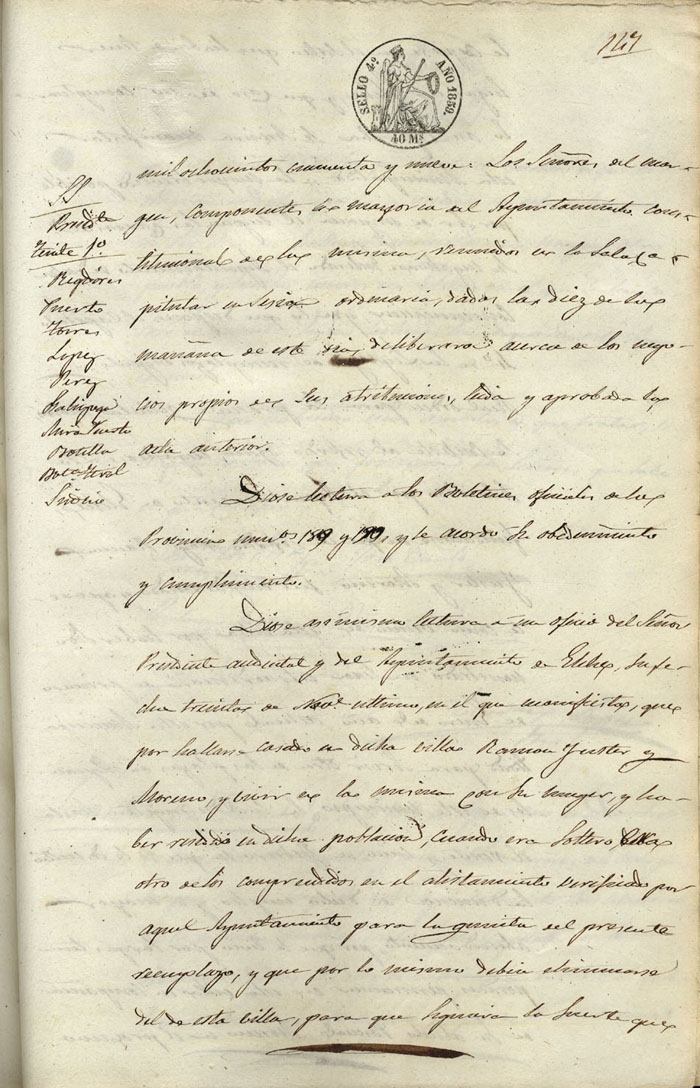 147
SELLO 4º AÑO 1859.
40 Ms
SS
Presidte
Tente 1º
Regidores
Puerto
Torres
Lopez
Perez
Mira Puerto
Botella
Sindico
mil ochocientos cincuenta y nueve: Los Señores del mar-
gen, componentes la mayoria del Ayuntamiento cons-
titucional de la misma, reunidos en la Sala Ca-
pitular en Sesion ordinaria, dadas las diez de la
mañana de este dia, deliberara acerca de los nego-
cios propios de sus atribuciones, leida y aprobada la
acta anterior.
Diose lectura a los Boletines oficiales de la
Provincia numos 189 y 190, y se acordo su obedecimiento
y cumplimiento.
Diose asimismo lectura a un oficio del Señor
Presidente accidental y del Ayuntamiento de Elche, su fe-
cha treinta de Nove ultimo, en el que manifiesta, que
por hallarse casado en dicha villa Ramon Juster y
Moreno, y vivir en la misma con su muger, y ha-
ber residido en dicha poblacion, cuando era Soltero,
otro de los comprendidos en el alistamiento verificado por
aquel Ayuntamiento para la quinta del presente
reemplazo, y que por lo mismo debia eliminarse
del de esta villa, para que siguiera la suerte que